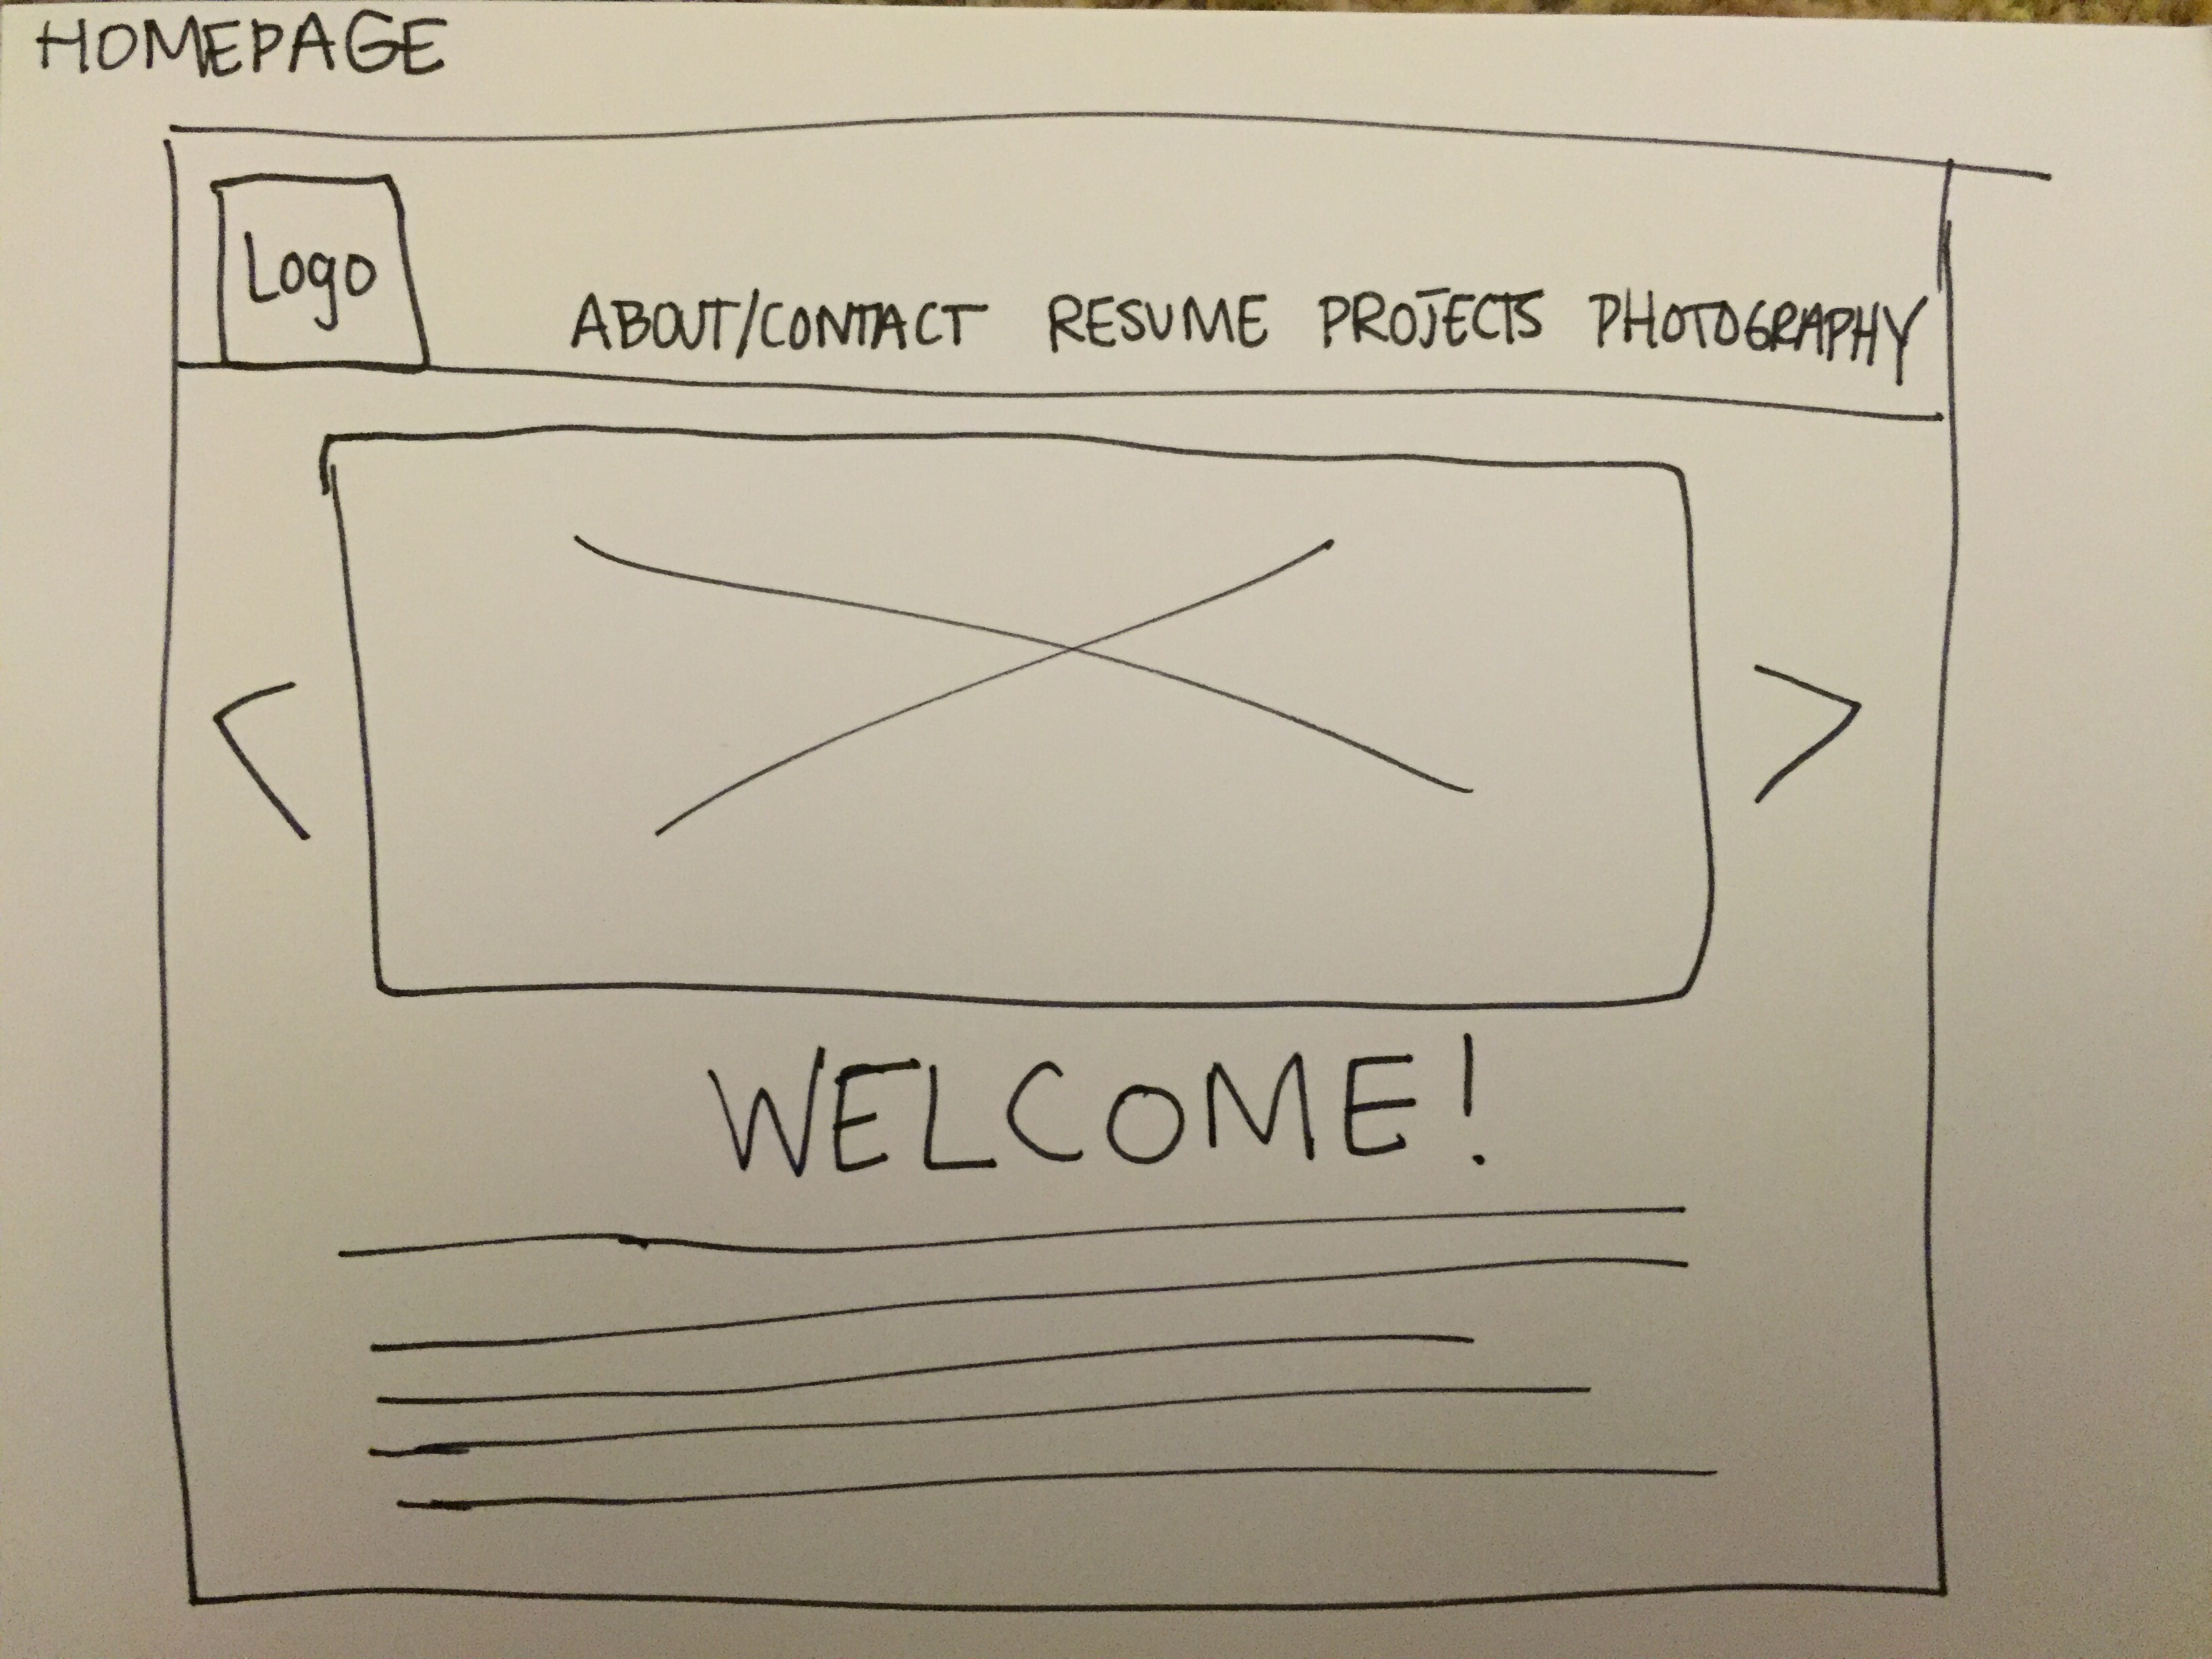 HOMEPAGE
Logo
ABOUT/CONTACT RESUME PROJECTS PHOTOGRAPHY
WELCOME!